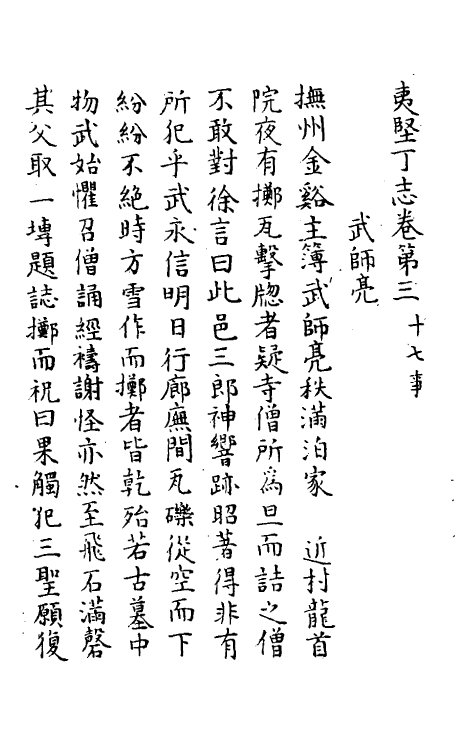 夷堅丁志卷第三 十七事
武師亮
撫州金谿主簿武師亮秩滿泊家 近村龍首
院夜有擲瓦擊牕者疑寺僧所為旦而詰之僧
不敢對徐言曰此邑三郎神響跡昭著得非有
所犯乎武永信明日行廊廡間瓦礫從空而下
紛紛不絕時方雪作而擲者皆乾殆若古墓中
物武始懼召僧誦經禱謝怪亦然至飛石滿磬
其父取一塼題誌擲而祝曰果觸犯三聖願復